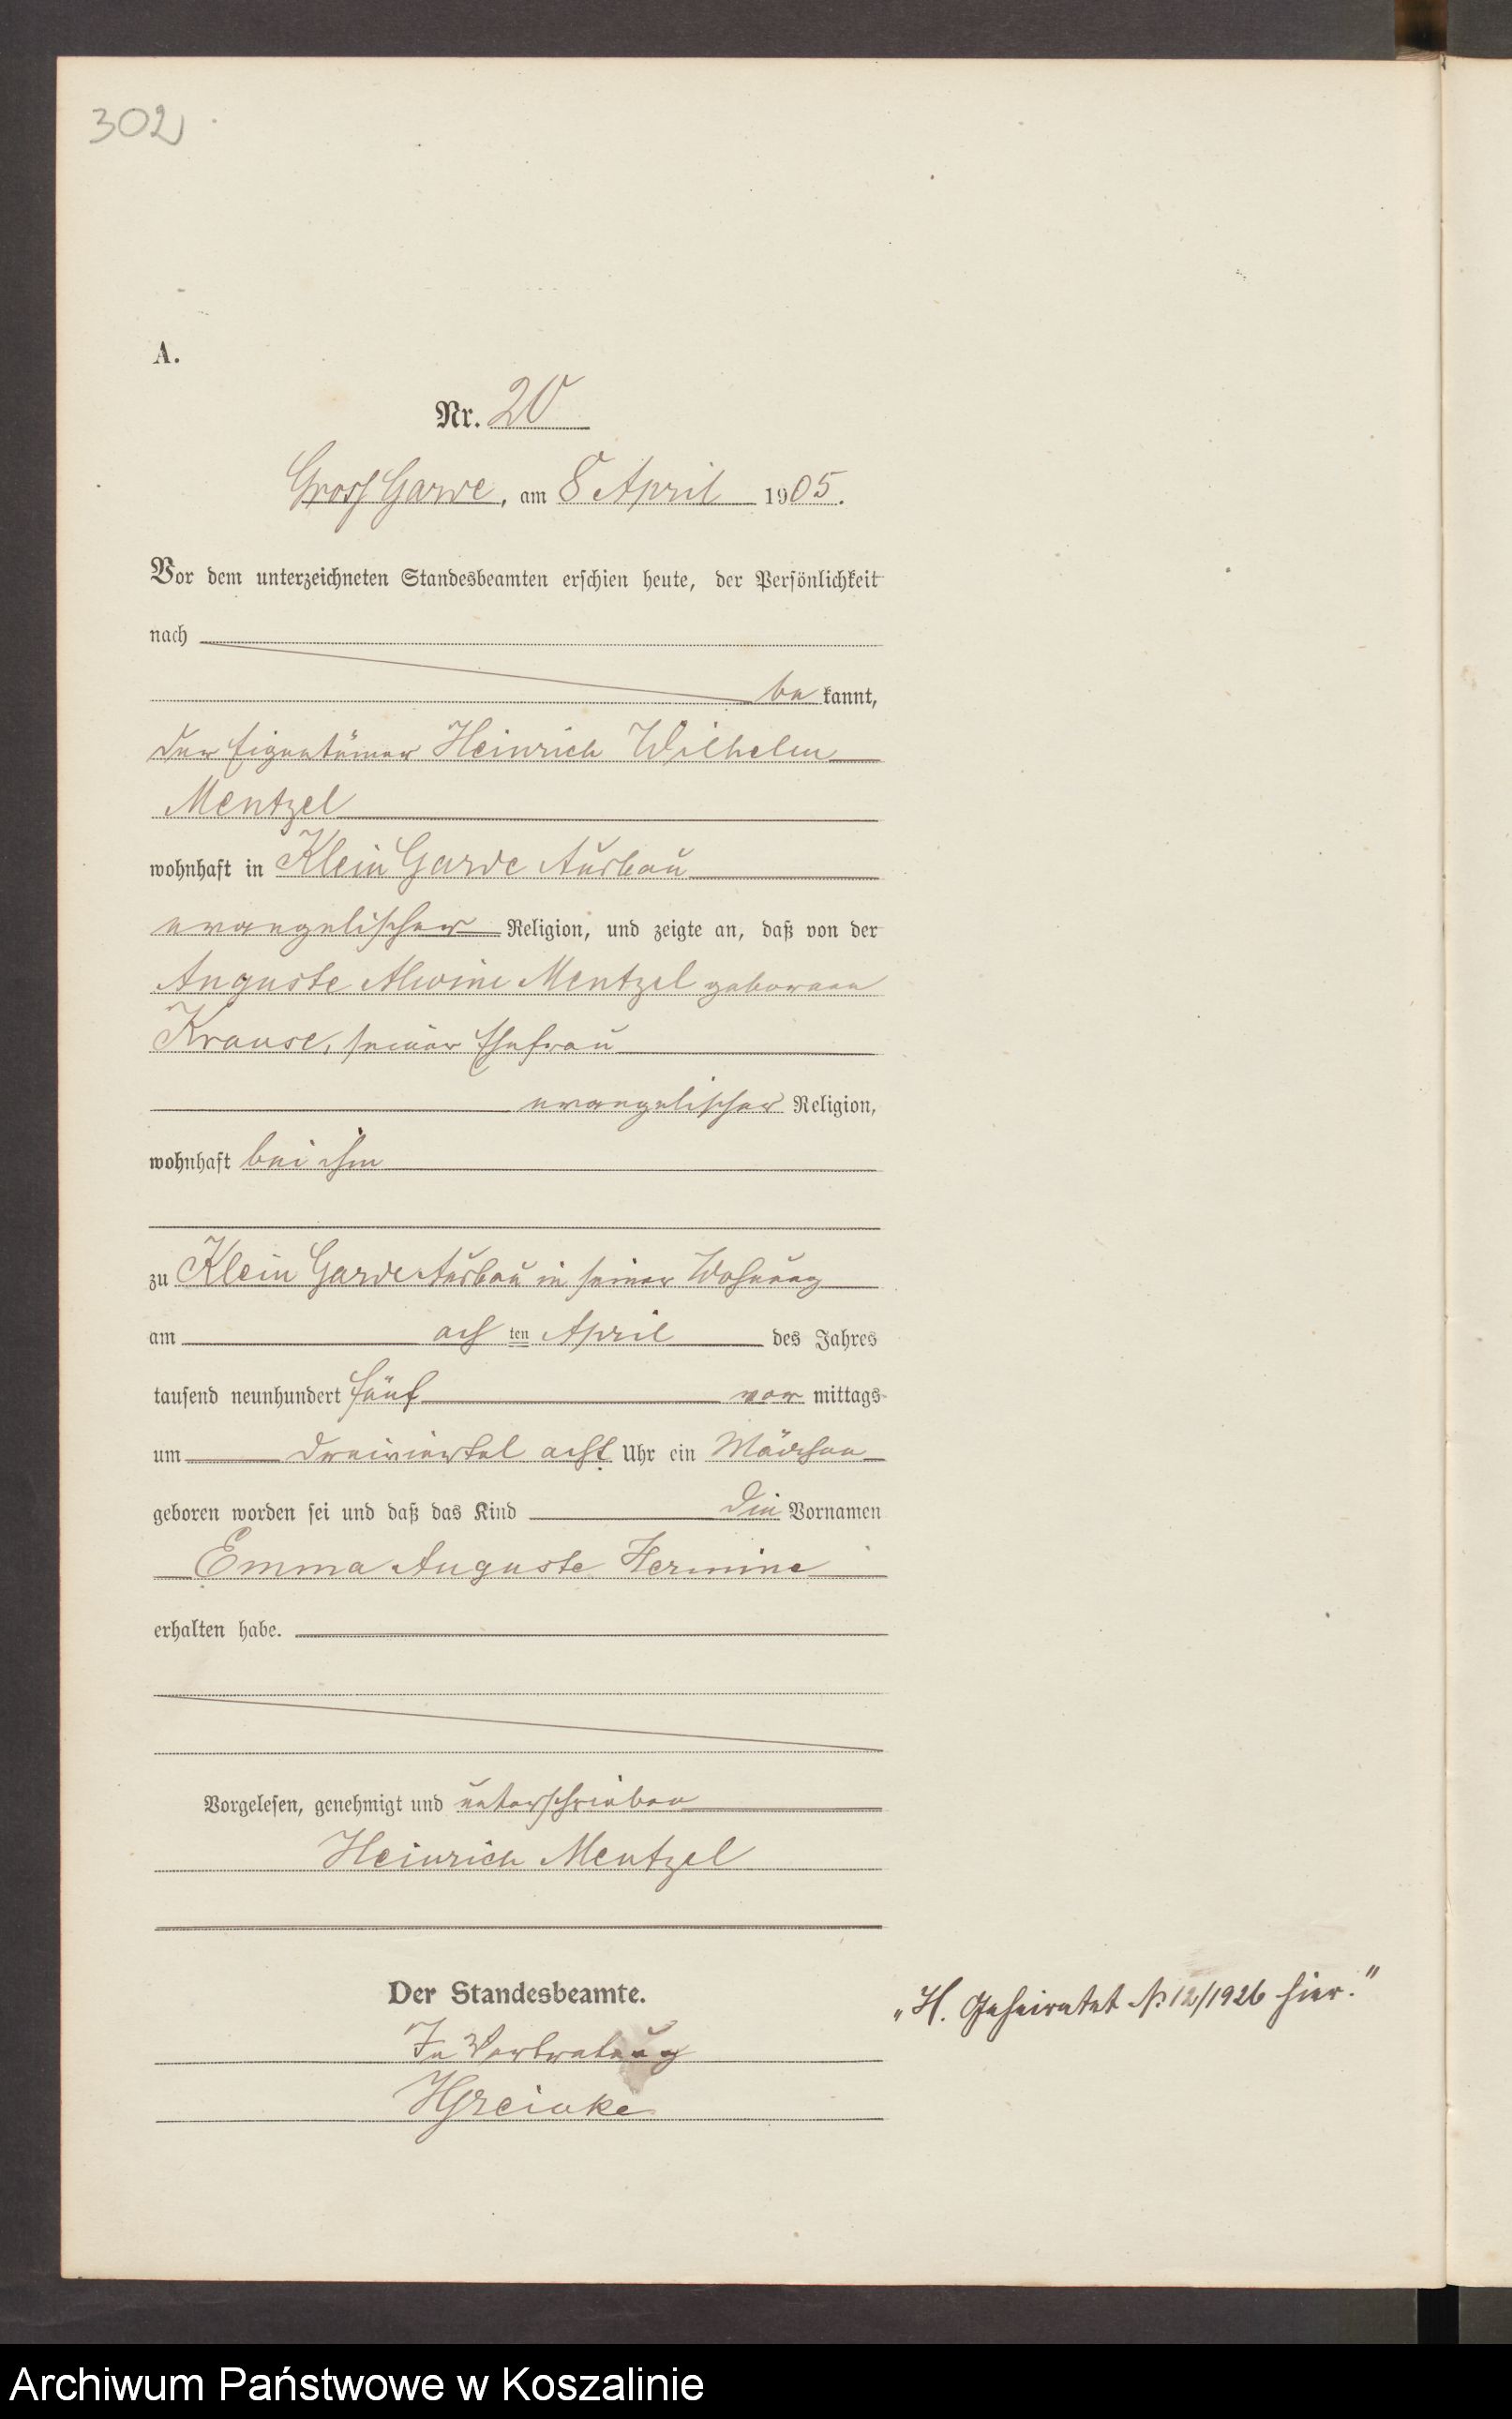 302
A.
Nr. 20
Gross Garde, am 8 April 1905.
Vor dem unterzeichneten Standesbeamten erschien heute, der Persönlichkeit
nach
be kannt,
der Eigentümer Heinrich Wilhelm
Mentzel
wohnhaft in Klein Garde Ausbau
evangelischer Religion, und zeigte an, daß von der
Auguste Alwine Mentzel geborene
Krause, seiner Ehefrau
evangelischer Religion,
wohnhaft bei ihm
zu Klein Garde Ausbau in seiner Wohnung
am ach ten April des Jahres
tausend neunhundert fünf vor mittags
um dreiviertel acht Uhr ein Mädchen
geboren worden sei und daß das Kind die Vornamen
Emma Auguste Hermine
erhalten habe.
Vorgelesen, genehmigt und unterschrieben
Heinrich Mentzel
Der Standesbeamte.
In Vertretung
„H. Geheiratet № 12/1926 hier.“
Archiwum Państwowe w Koszalinie